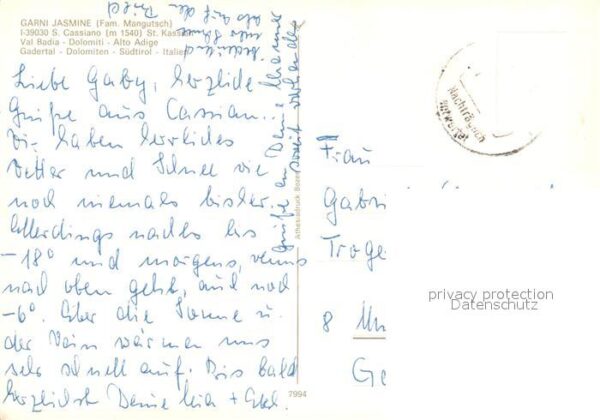 GARNI JASMINE (Fam. Mangutsch)
I-39030 S. Cassiano (m 1540) St. Kassian
Val Badia - Dolomiti - Alto Adige
Gadertal - Dolomiten - Südtirol - Italien
Liebe Gaby, herzliche
Grüße aus Cassian.
Wir haben herrliches
Wetter und Schnee wie
noch niemals bisher.
Allerdings nachts bis
-18° und morgens, wenns
nach oben geht, auch noch
-6°. Aber die Sonne u.
der Wein wärmen uns
sehr schnell auf. Bis bald
herzlichst Deine
Grüße an Deine
soweit vorhanden
als auf dem
Athesiadruck
7994
Nachträglich
entwertet
Frau
Gabri
Troge
8 Mü
Ge
privacy protection
Datenschutz